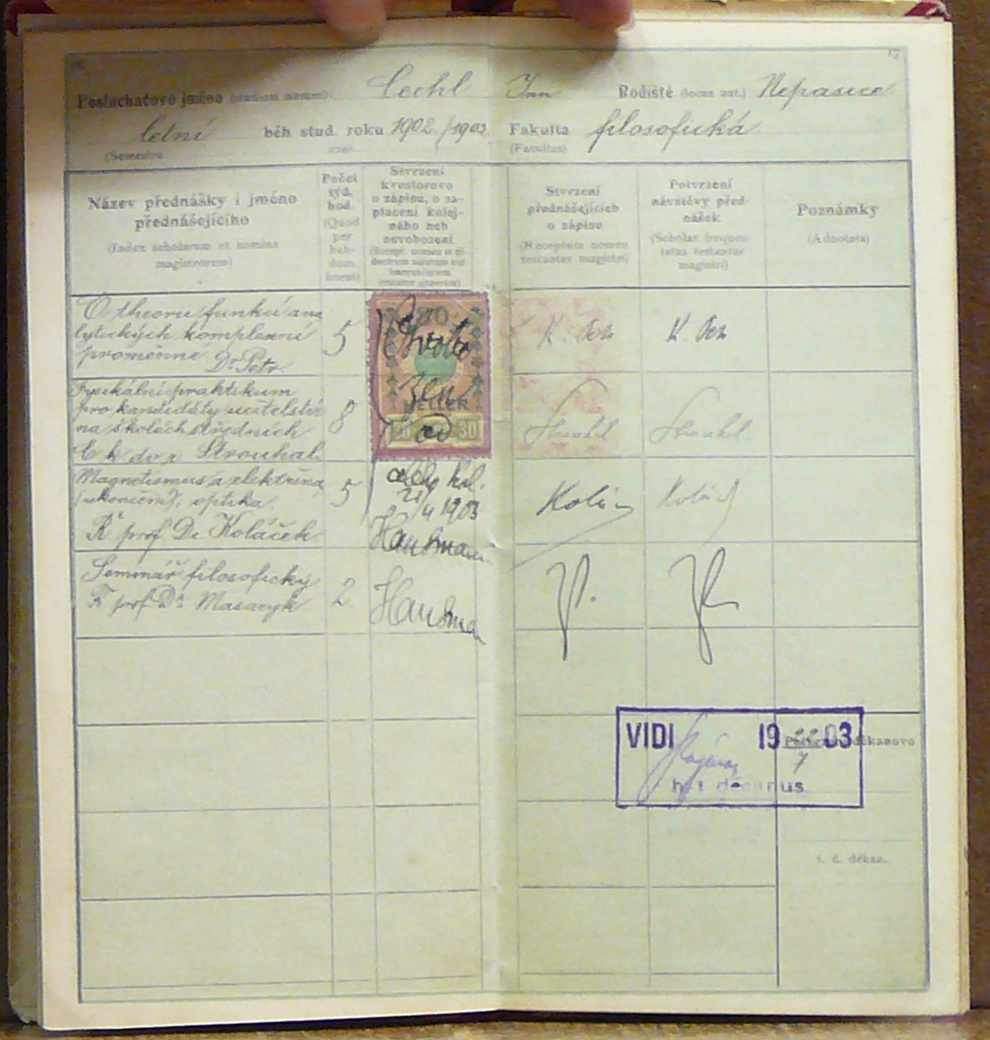 Posluchačovo jméno (civium nomen): Čechl Jan Rodiště (locus nat.) Nepasice
letní běh stud. roku 1902/1903 Fakulta filosofická
(Semestre (Facultas)
Název přednášky i jméno přednášejícího
(Index scholarum et nomina magistrorum)
Počet týd. hod.
(Quot per hebdom. horas)
Stvrzení kvestorovo o zápisu, o zaplacení kolejného neb osvobození
Stvrzení přednášejících o zápisu
Potvrzení návštěvy přednášek
(Scholas frequentatas testantur magistri)
Poznámky
(Adnotata)
O theorii funkcí ana
lytických komplexní
proměnné Dr. Petr
5
K. Petr
K. Petr
30
HELLER
30
Fysikální praktikum
pro kandidáty učitelství
na školách středních
Strouhal
8
Strouhal
Strouhal
Magnetismus a elektřina
(ukončení), optika
Ř prof Dr Koláček
5
celé kol.
21/4 1903
Hausmann
Koláč
Koláč
Seminář filosofický
Ř prof Dr Masaryk
2
Hausman
VIDI 19 22/7 03
h. t. decanus
Potvrzení děkanovo
t. č. děkan.